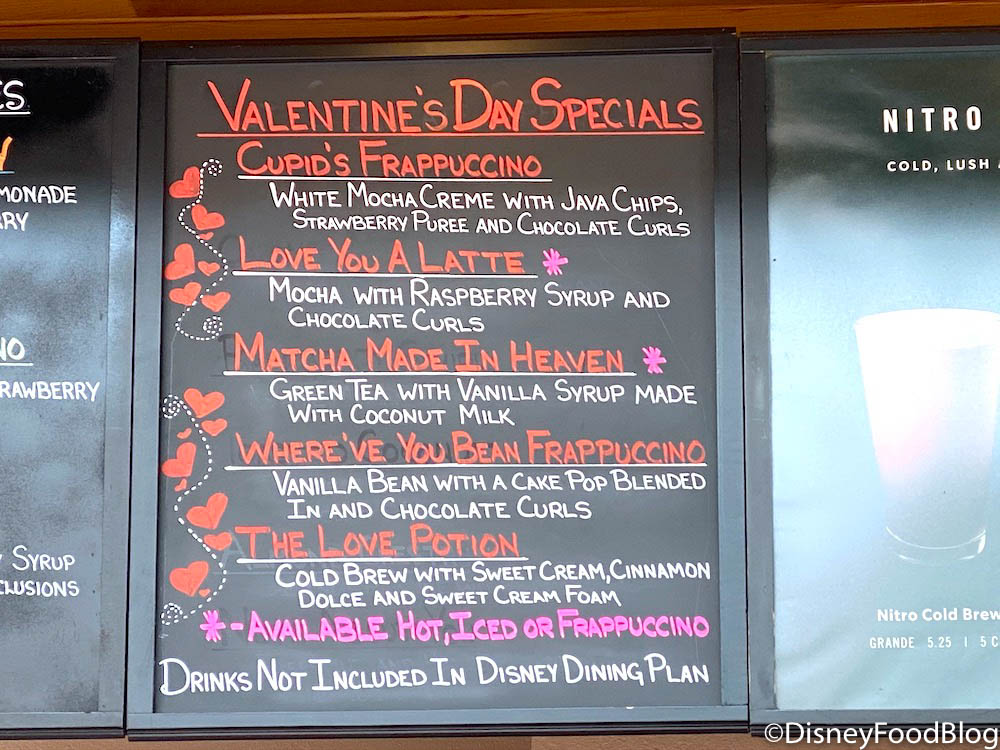 VALENTINE'S DAY SPECIALS
CUPID'S FRAPPUCCINO
WHITE MOCHA CREME WITH JAVA CHIPS,
STRAWBERRY PUREE AND CHOCOLATE CURLS
LOVE YOU A LATTE *
MOCHA WITH RASPBERRY SYRUP AND
CHOCOLATE CURLS
MATCHA MADE IN HEAVEN *
GREEN TEA WITH VANILLA SYRUP MADE
WITH COCONUT MILK
WHERE'VE YOU BEAN FRAPPUCCINO
VANILLA BEAN WITH A CAKE POP BLENDED
IN AND CHOCOLATE CURLS
THE LOVE POTION
COLD BREW WITH SWEET CREAM, CINNAMON
DOLCE AND SWEET CREAM FOAM
* - AVAILABLE HOT, ICED OR FRAPPUCCINO
DRINKS NOT INCLUDED IN DISNEY DINING PLAN
SYRUP
NITRO
COLD, LUSH
Nitro Cold Brew
GRANDE 5.25 | 5 C
©DisneyFoodBlog